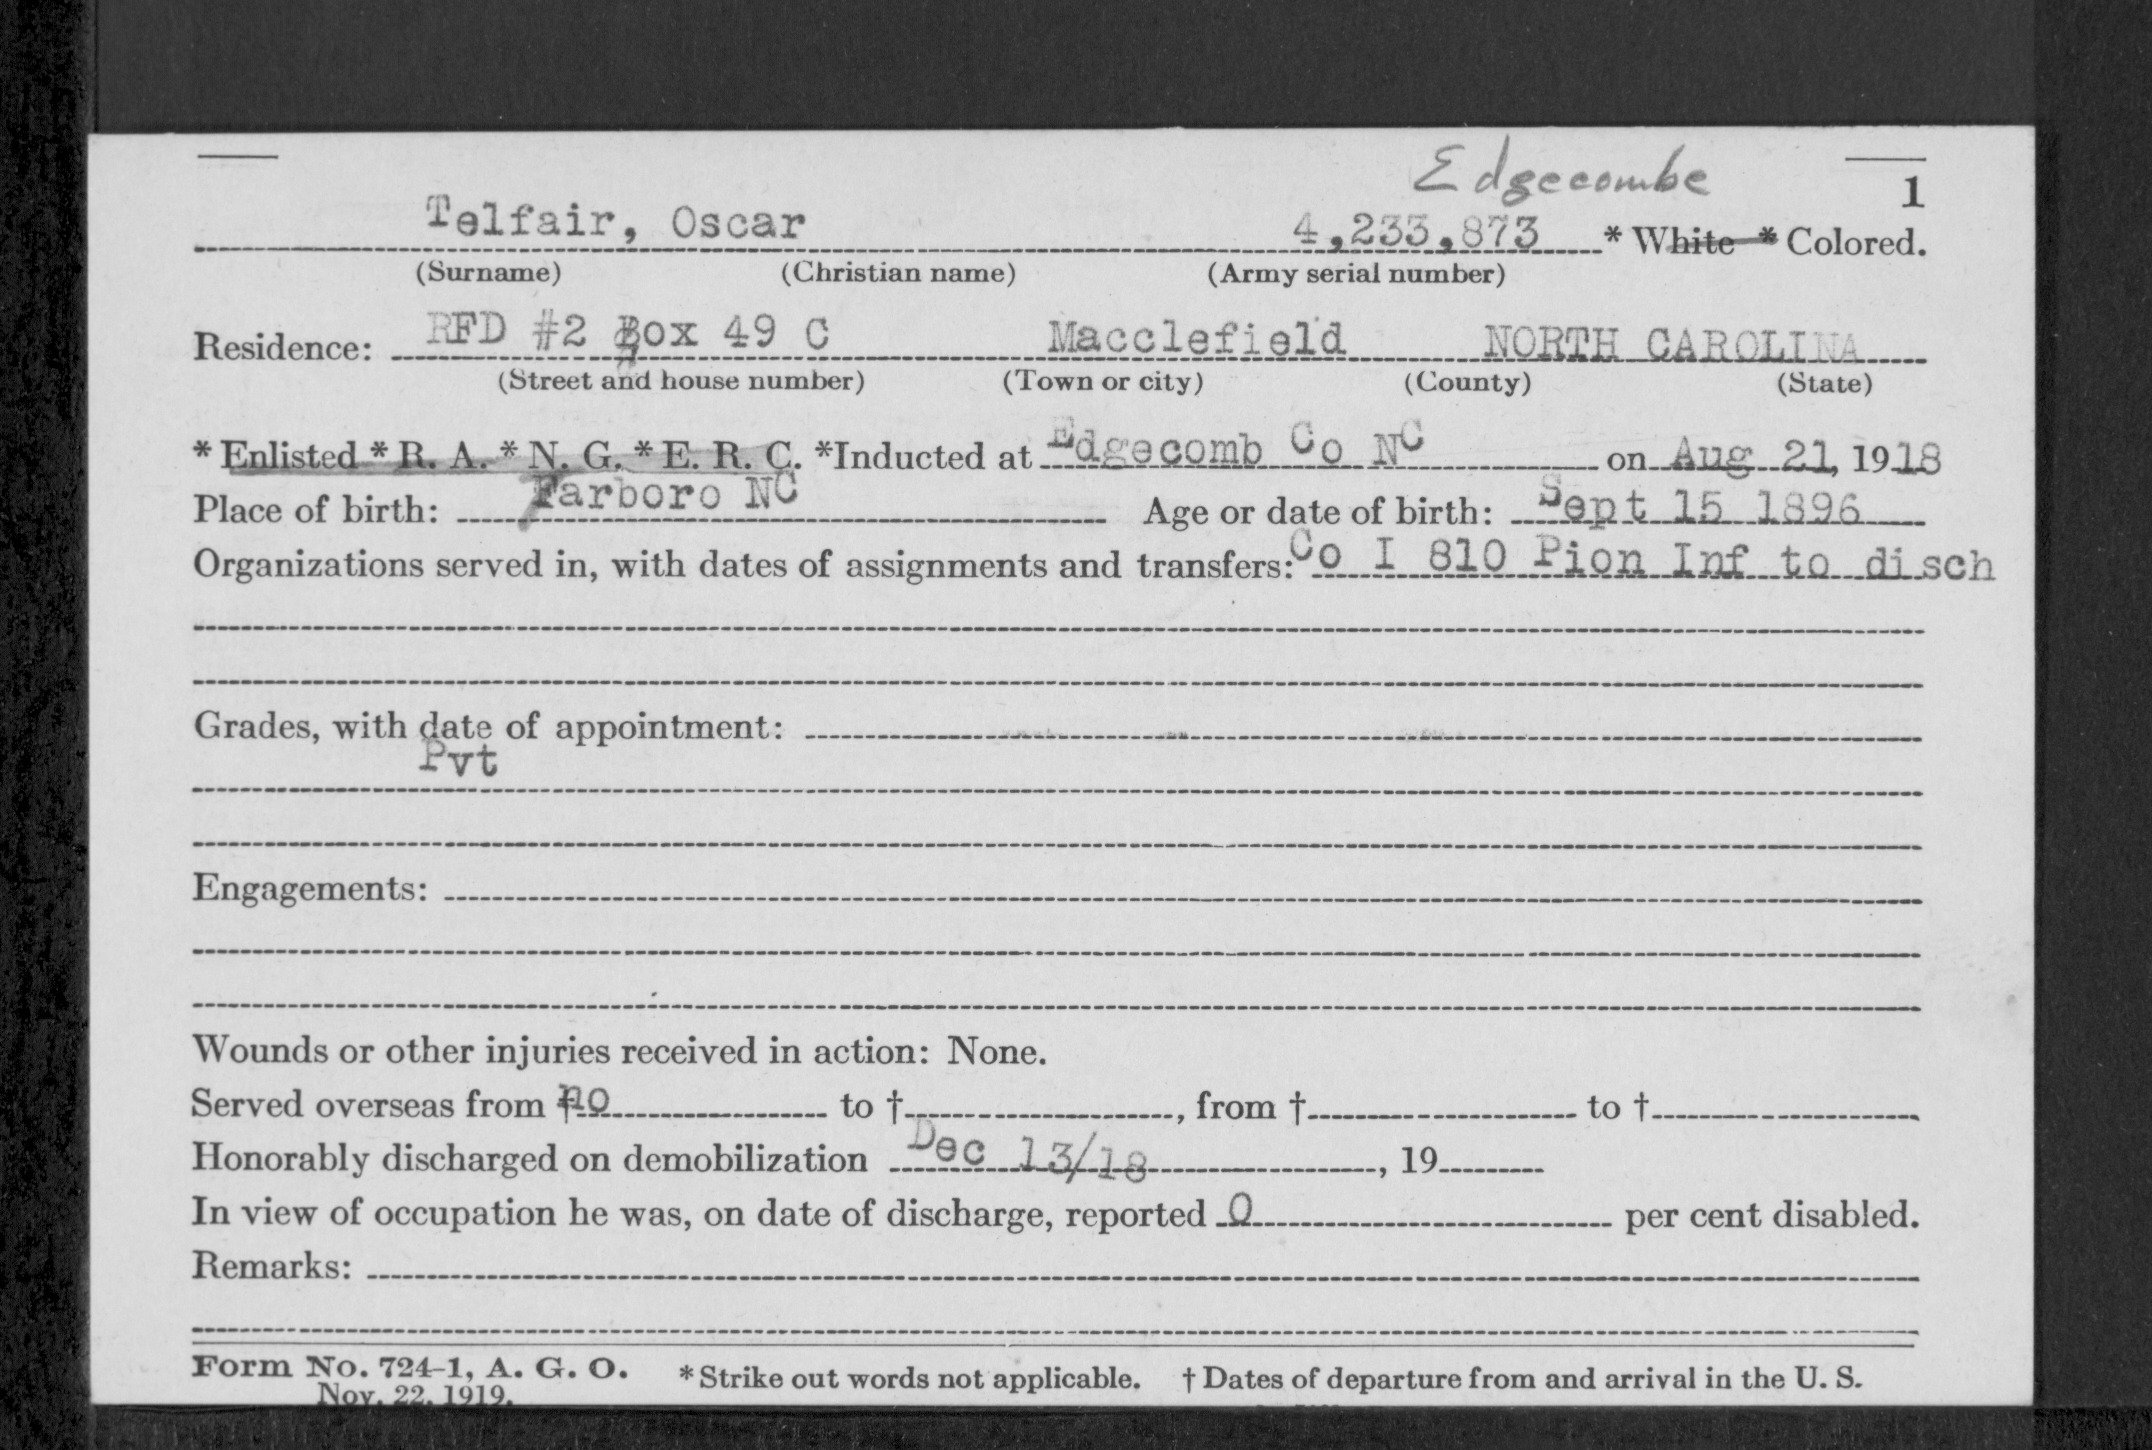 Edgecombe
1
Telfair, Oscar 4,233,873 * White * Colored.
(Surname) (Christian name) (Army serial number)
Residence: RFD #2 Box 49 C Macclefield NORTH CAROLINA
(Street and house number) (Town or city) (County) (State)
* Enlisted * R. A. * N. G. * E. R. C. *Inducted at Edgecomb Co NC on Aug 21, 1918
Place of birth: Tarboro NC Age or date of birth: Sept 15 1896
Organizations served in, with dates of assignments and transfers: Co I 810 Pion Inf to disch
Grades, with date of appointment:
Pvt
Engagements:
Wounds or other injuries received in action: None.
Served overseas from † no to †, from † to †
Honorably discharged on demobilization Dec 13/18, 19
In view of occupation he was, on date of discharge, reported 0 per cent disabled.
Remarks:
Form No. 724-1, A. G. O. * Strike out words not applicable. † Dates of departure from and arrival in the U. S.
Nov. 22, 1919.